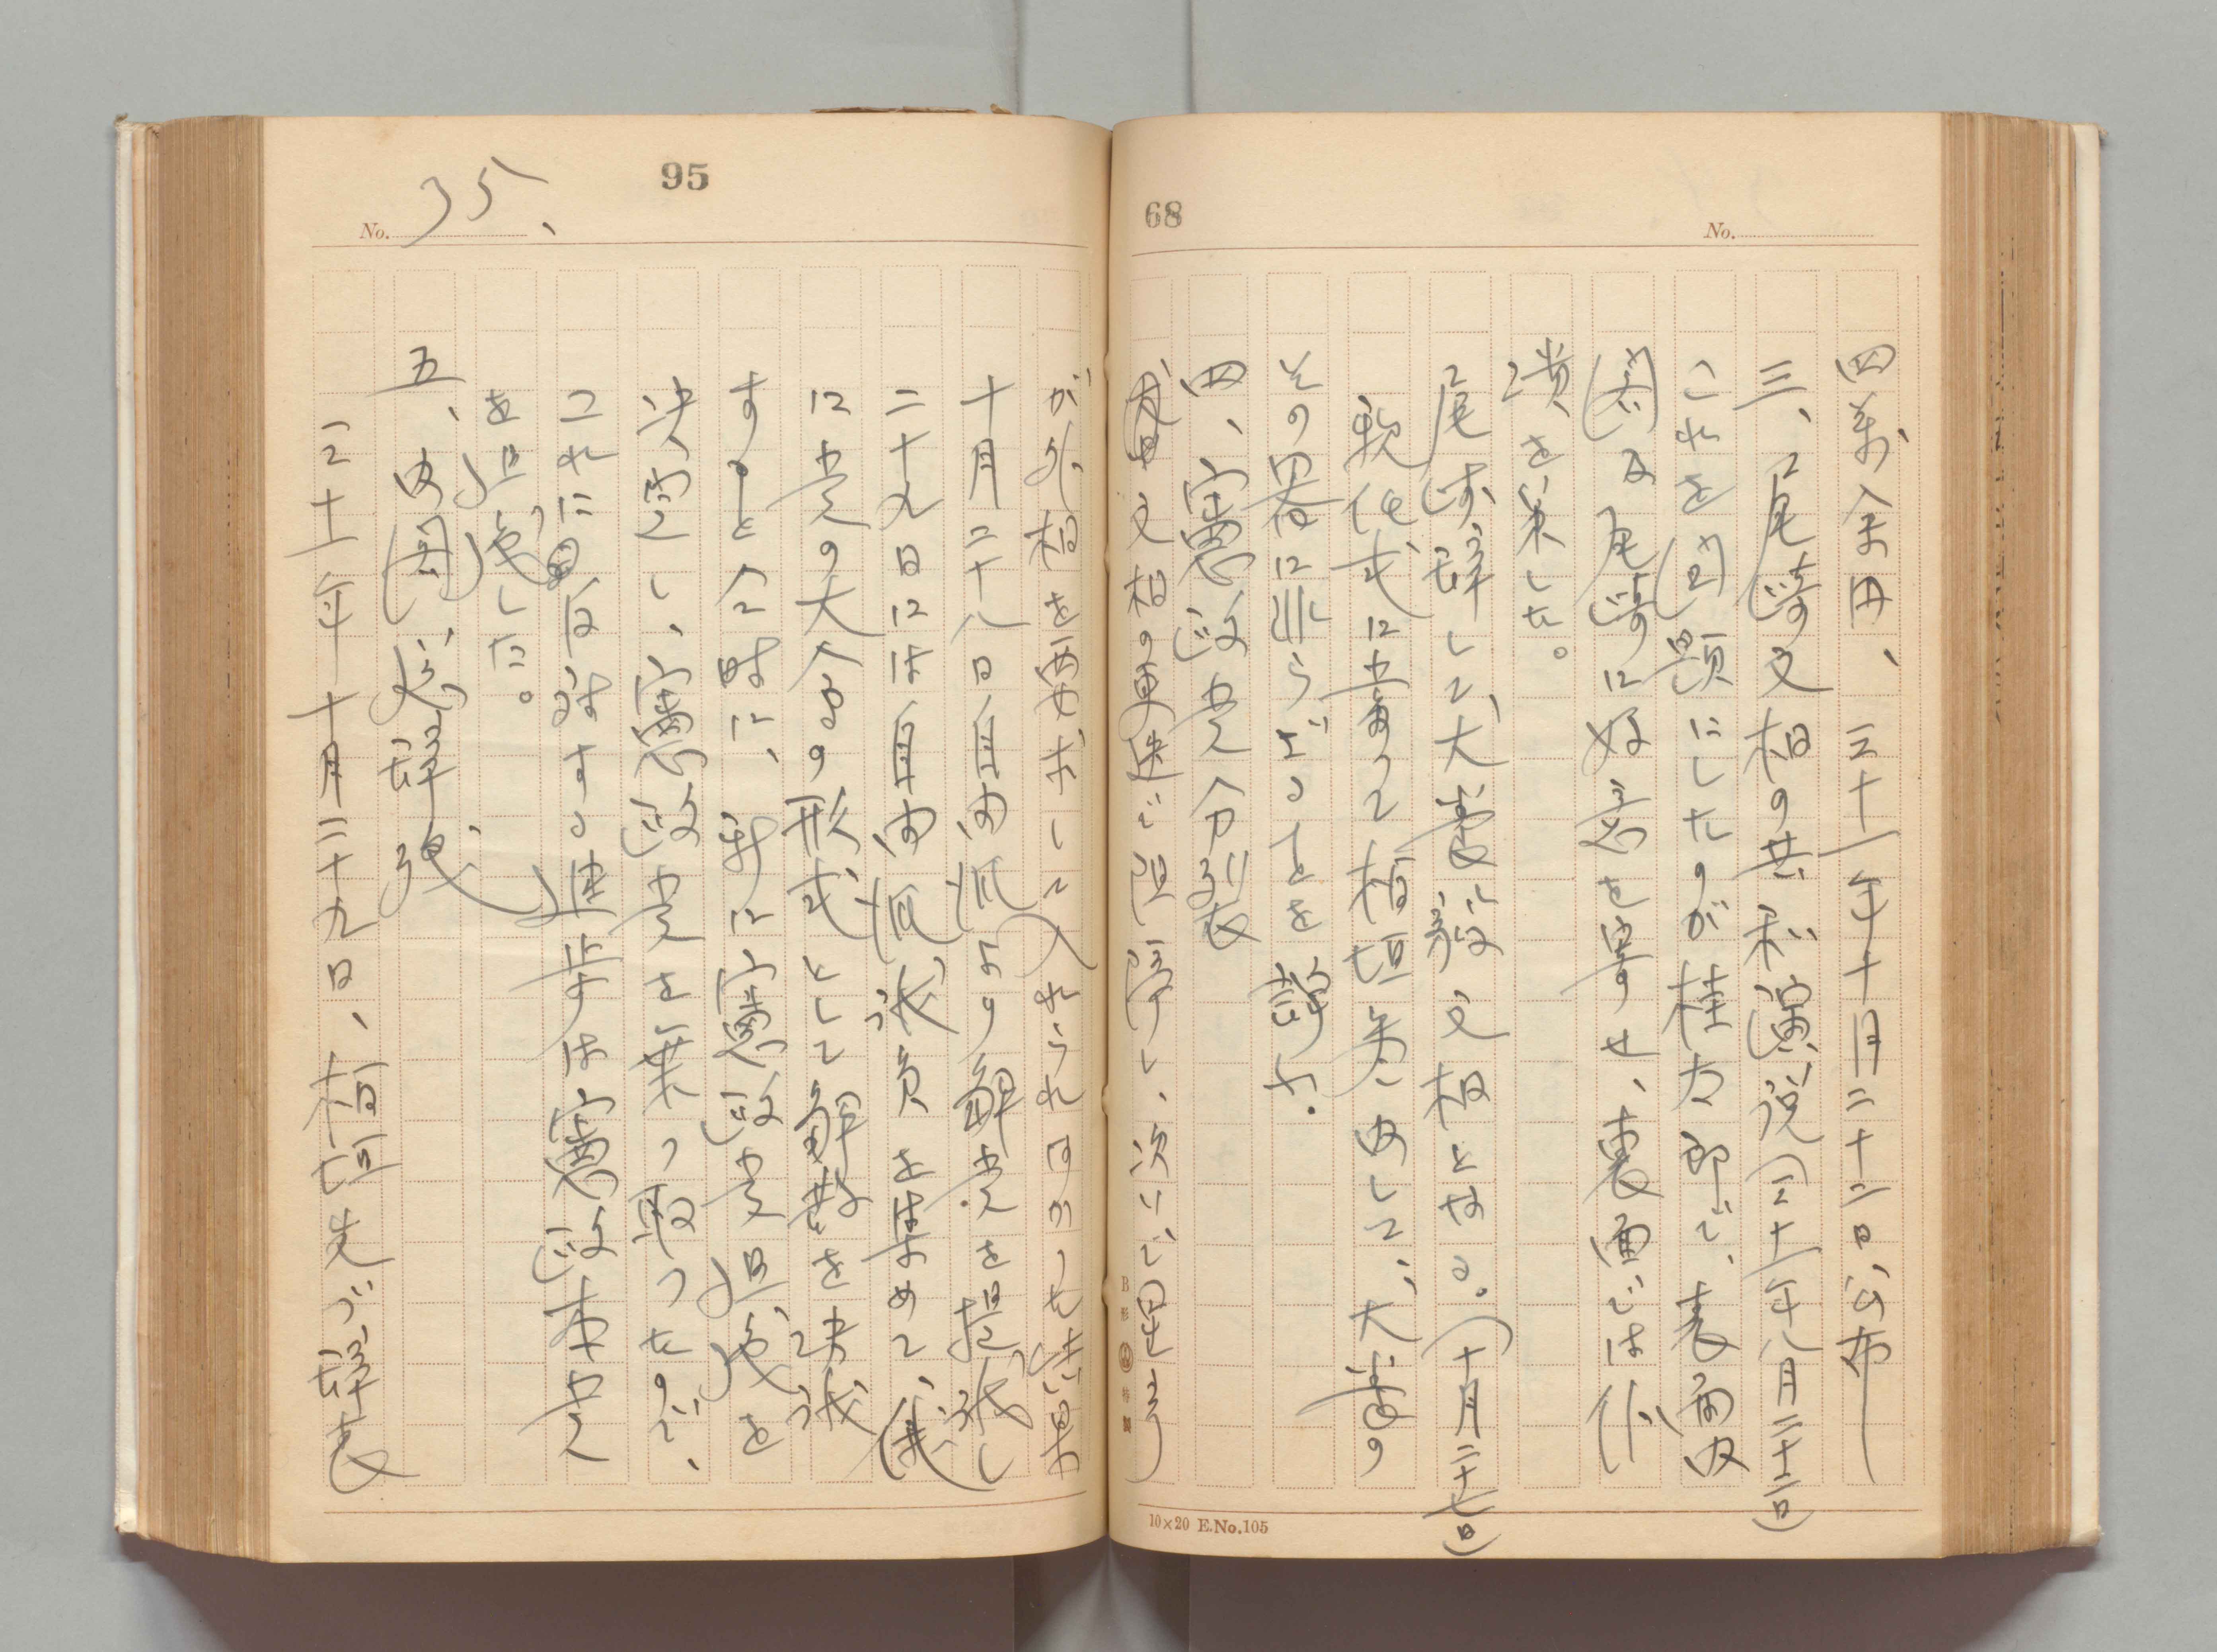 68
No.
四萬余円、三十一年十月二十二日公布
三、尾崎文相の共和演説(三十一年八月二十二日)
これを問題にしたのが桂太郎で、表面内
閣及尾崎に好意を寄せ、裏面では
潰を策した。
尾崎辞して、犬養毅文相となる。(十月二十七日)
就任式に當つて板垣参内して、犬養の
その器に非らざることを
四、憲政党分裂
文相の更迭で
10×20 E.No.105
95
No. 35、
が外相を要求して入れられなかつた結果
十月二十八日自由派より解党を提議し
二十九日には自由派議員を集めて、
に党の大会の形式として解散を決議
すると同時に、新に憲政党組織を
決定し、憲政党を乗つ取つたので、
これに反対する進歩は憲政本党
を組織した。
五、内閣総辞職
三十一年十月二十九日、板垣先づ辞表